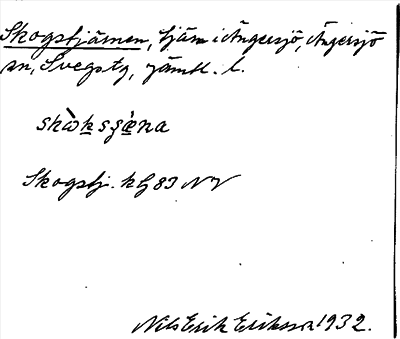 Skogstjärnen, tjärn i Ängersjö, Ängersjö
sn, Svegs tg, Jämtl. l.
Skogstj. kg 83 NV
Nils Erik Eriksson 1932.